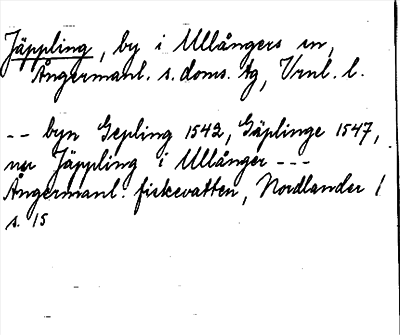 Jäppling, by i Ullångers sn,
Ångermanl. s. doms. tg, Vrnl. l.
-- byn Gepling 1542, Gäplinge 1547,
nu Jäppling i Ullånger ---
Ångermanl. fiskevatten, Nordlander 1
s. 15